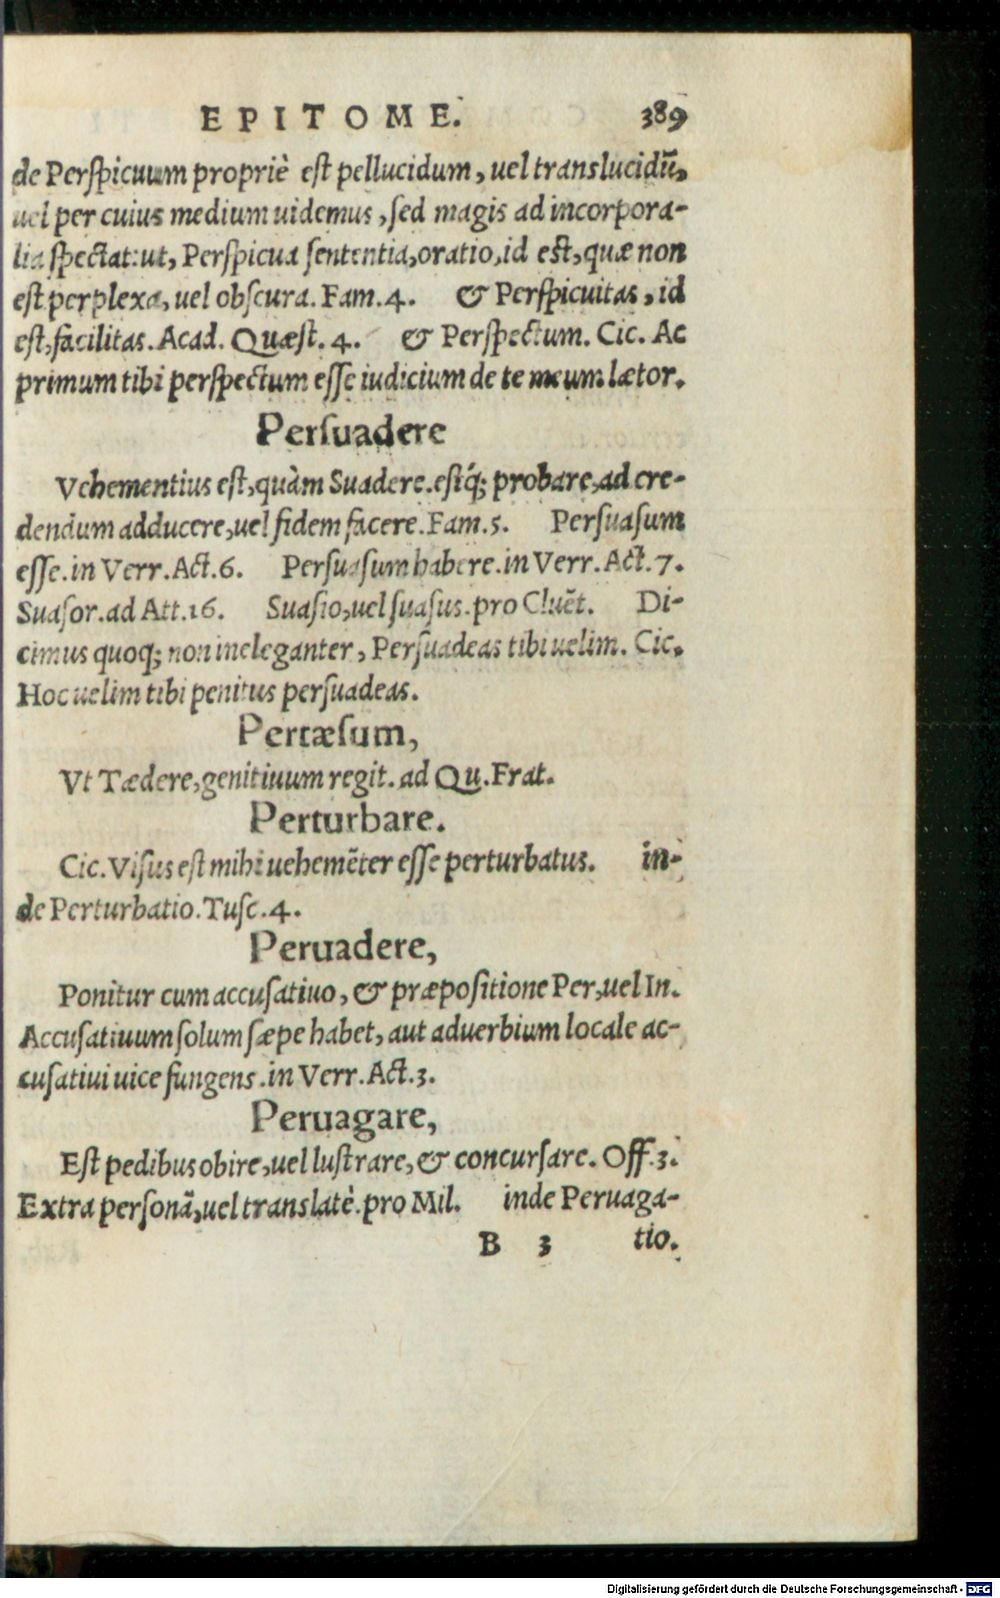 EPITOME. 389
de Perspicuum propriè est pellucidum, uel translucidū,
uel per cuius medium uidemus, sed magis ad incorpora-
lia spectat: ut, Perspicua sententia, oratio, id est, quæ non
est perplexa, uel obscura. Fam. 4. & Perspicuitas, id
est, facilitas. Acad. Quæst. 4. & Perspectum. Cic. Ac
primum tibi perspectum esse iudicium de te meum lætor.
Persuadere
Vehementius est, quàm Suadere. estq́; probare, ad cre-
dendum adducere, uel fidem facere. Fam. 5. Persuasum
esse. in Verr. Act. 6. Persuasum habere. in Verr. Act. 7.
Suasor. ad Att. 16. Suasio, uel suasus. pro Cluēt. Di-
cimus quoq; non ineleganter, Persuadeas tibi uelim. Cic.
Hoc uelim tibi penitus persuadeas.
Pertæsum,
Vt Tædere, genitiuum regit. ad Qu. Frat.
Perturbare.
Cic. Visus est mihi uehemēter esse perturbatus. in-
de Perturbatio. Tusc. 4.
Peruadere,
Ponitur cum accusatiuo, & præpositione Per, uel In.
Accusatiuum solum sæpe habet, aut aduerbium locale ac-
cusatiui uice fungens. in Verr. Act. 3.
Peruagare,
Est pedibus obire, uel lustrare, & concursare. Off. 3.
Extra personā, uel translatè. pro Mil. inde Peruaga-
B 3 tio.
Digitalisierung gefördert durch die Deutsche Forschungsgemeinschaft - DFG